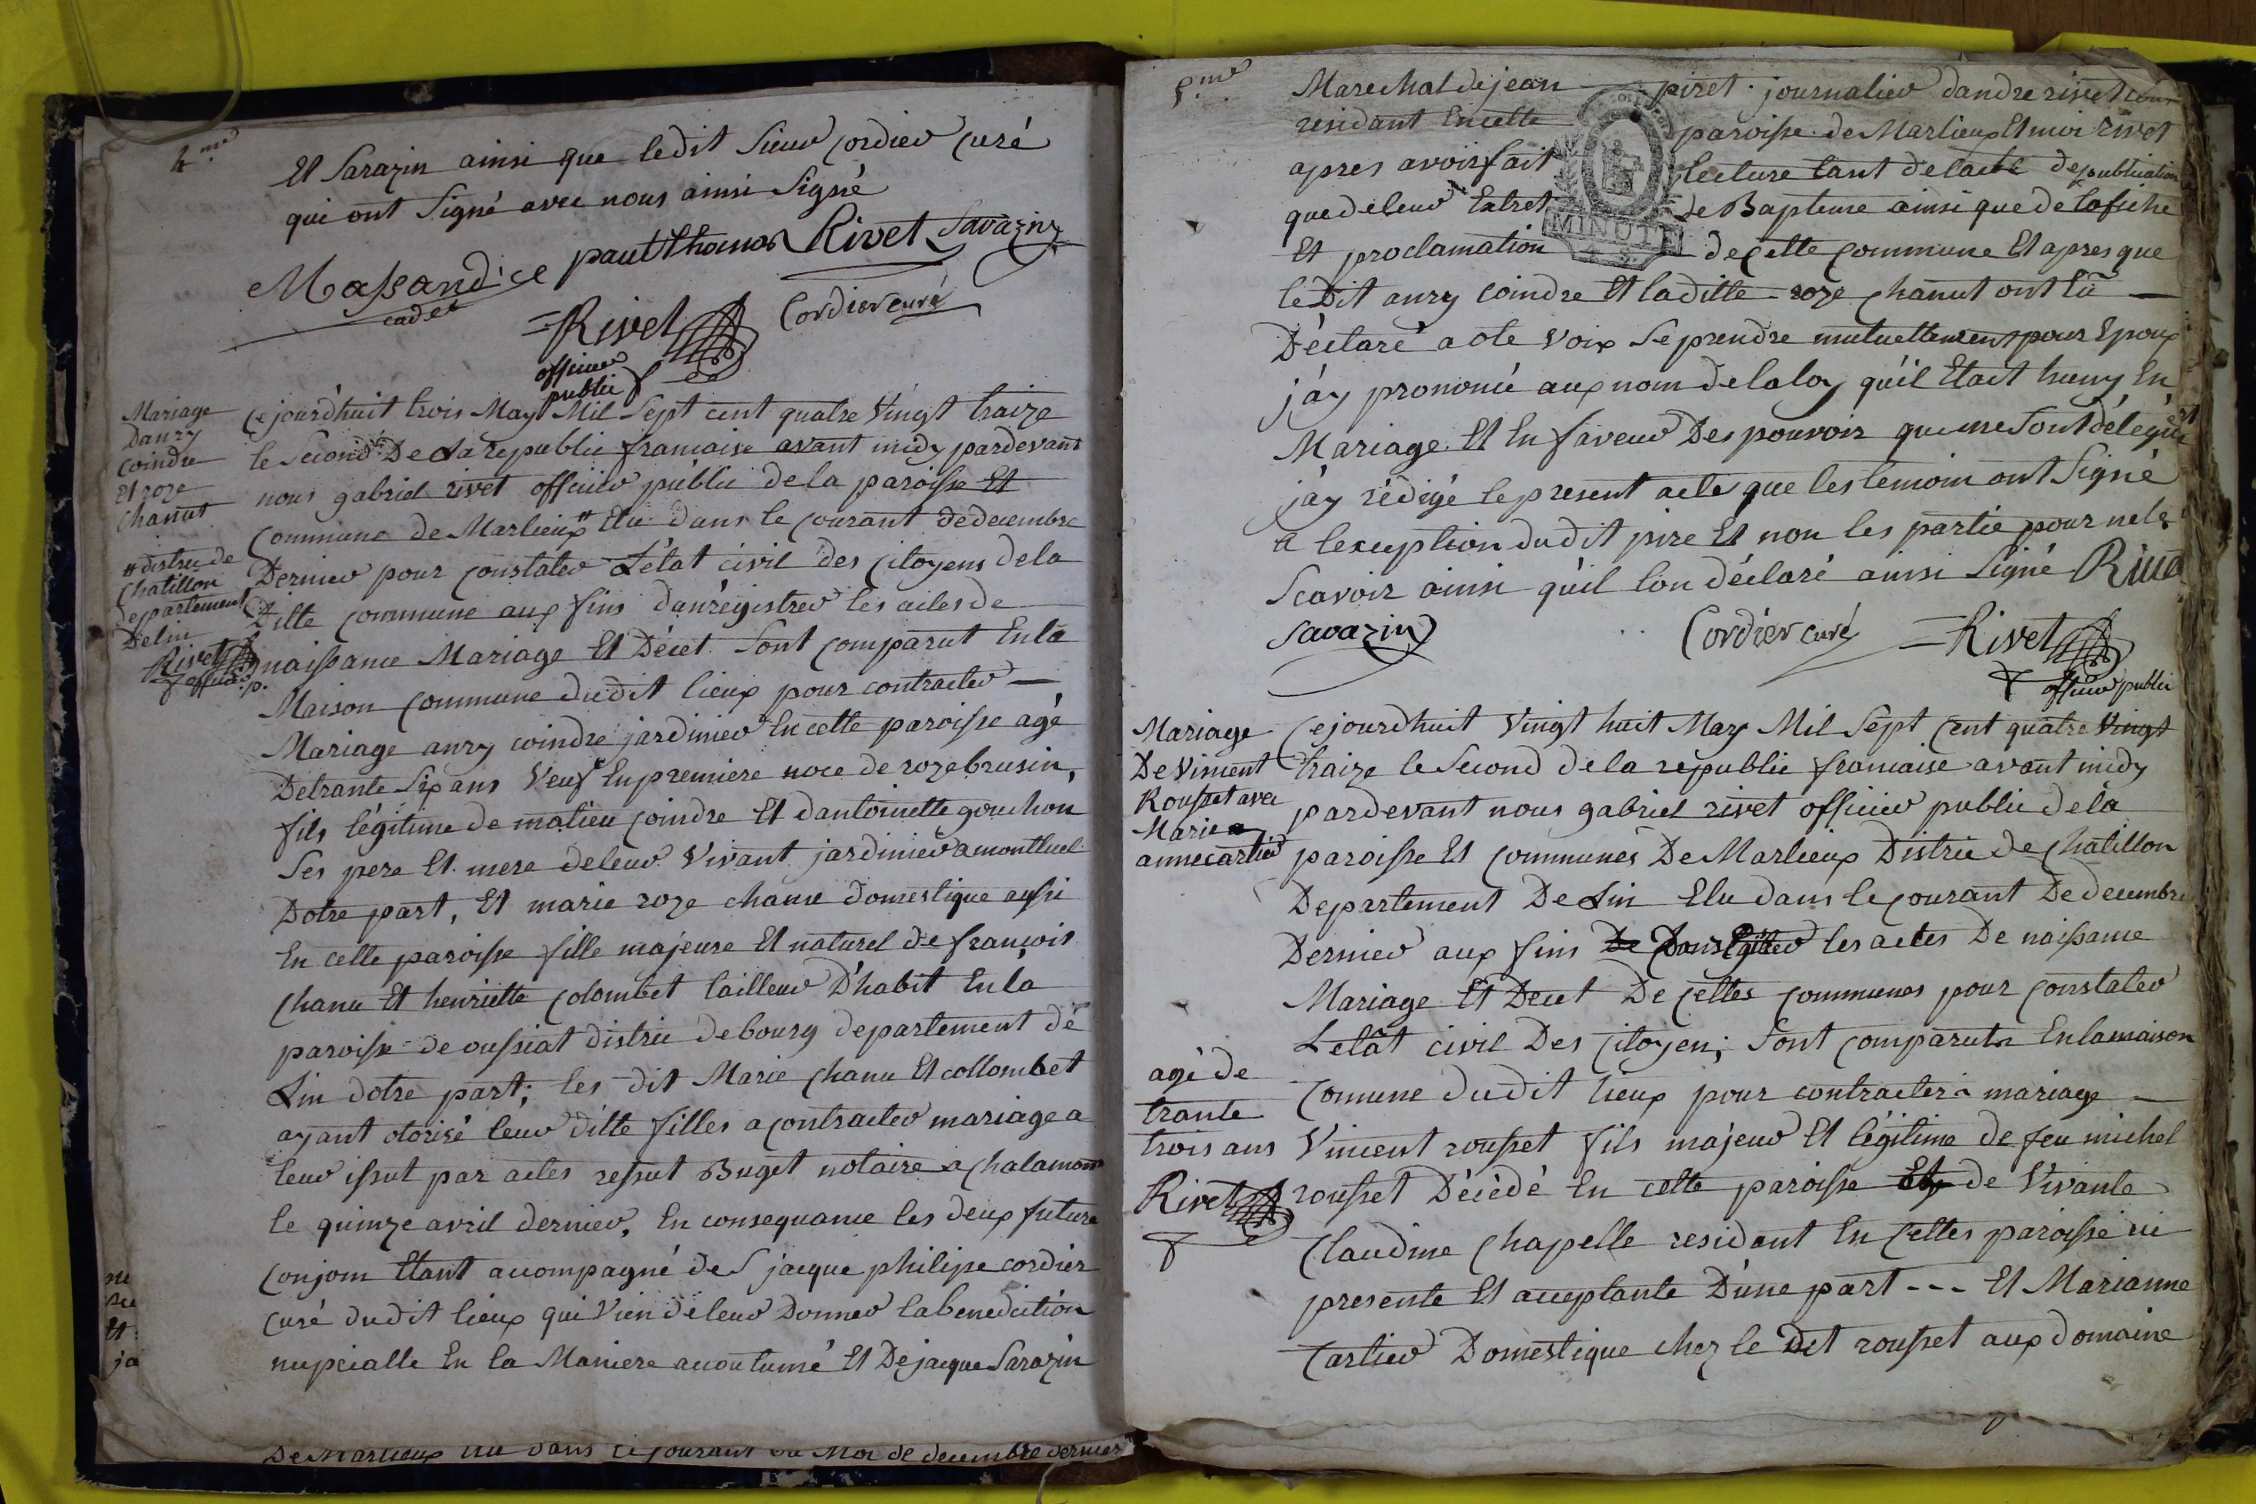 4.me
Et Sarazin ainsi que ledit Sieur Cordier Curé
qui ont Signé avec nous ainsi Signé
Massandice paul thomas Rivet Sarazin
cadet
=Rivet Cordier curé
officier
public
Mariage
Danry
coindre
Et roze
Chanut
# distric de
Chatillon
departement
Delin
Rivet
officier p.
Cejourdhuit trois May Mil Sept cent quatre Vingt traize
le Second De La republic francaise avant midy pardevant
nous gabriel rivet officier public de la paroisse Et
Commune de Marlieux # Elu dans le Courant de decembre
Dernier pour Constater L'état civil des Citoyens de la
Ditte commune aux fins danrégistrer les actes de
naissance Mariage Et Décet Sont comparut En la
Maison Commune dudit lieux pour contracter
Mariage anry coindre jardinier En cette paroisse agé
De trante Six ans Veuf En premiere noce de roze brusin,
fils légitime de matieu Coindre Et dantoinette gouchon
Ses pere Et mere de leur Vivant jardinier a montluel
Dotre part, Et marie roze chanu domestique aussi
En cette paroisse fille majeure Et naturel de francois
Chanu Et henriette Colombet tailleur D'habit En la
paroisse de oussiat distric de bourg departement de
Lin dotre part; les dit Marie Chanu Et collombet
ayant otorisé leur ditte filles a Contracter mariage a
leur issut par actes ressut Buget notaire a Chalamon
le quinze avril dernier, En consequance les deux future
Conjoin Etant accompagné de S jacque philipe cordier
Curé dudit lieux qui Vien de leur Donner la benediction
nupcialle En la Maniere acoutumé Et De jacque Sarazin
De Marlieux Elu dans le Courant du Moi de decembre dernier
5.me
Marechal de jean piret journalier dandre rivet
residant En cette paroisse de Marlieux Et moi rivet
apres avoir fait lecture tant de lacte de publication
que de leur Extret de Bapteme ainsi que de lafiche
Et proclamation de Cette Commune Et apres que
MINUTE
le Dit anry Coindre Et laditte roze Chanut ont Eu
Déclaré a ote Voix Se prendre mutuellement pour Epoux
j'ay prononcé aux nom de la loy qu'il Etait huny En
Mariage Et En faveur Des pouvoir qui me Sont délégué
j'ay rédigé le present acte que les temoin ont Signé
a lexception dudit pire Et non les partie pour ne le
Scavoir ainsi qu'il lon déclaré ainsi Signé Rivet
Sarazin Cordier curé =Rivet
officier public
Mariage
De Vincent
Rousset avec
Marie
anne cartier
Cejourdhuit Vingt huit May Mil Sept Cent quatre Vingt
traize le Second de la républic francaise avant midy
pardevant nous gabriel rivet officier public de la
paroisse Et Communes De Marlieux Distric de Chatillon
Departement De Lin Elu dans le Courant De decembre
Dernier aux fins De les actes De naissance
Mariage Et Decet De Cettes Communes pour Constater
L'état civil Des Citoyen; Sont Comparut En la maison
Comune dudit lieux pour contracter mariage
agé de
trante
trois ans
Rivet
Vincent rousset fils majeur Et légitime de feu michel
rousset Décèdé En cette paroisse Et de Vivante
Claudine Chapelle residant En Cettes paroisse ici
presente Et acceptante D'une part --- Et Marianne
Cartier Domestique chez le Dit rousset aux domaine